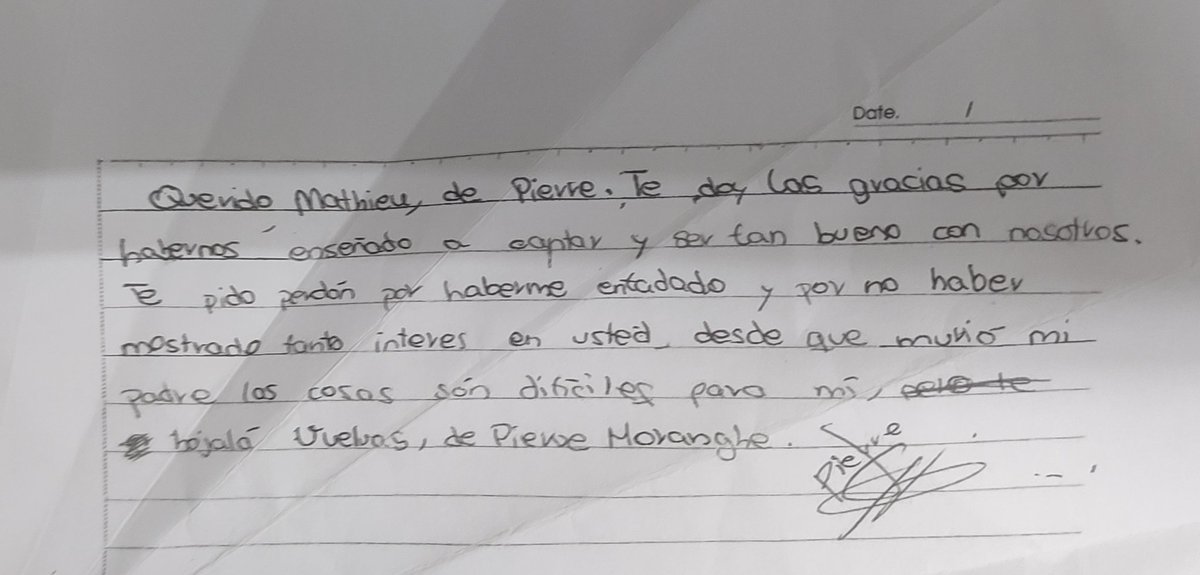 Date. /
Querido Mathieu, de Pierre. Te doy las gracias por
habernos enseñado a cantar y ser tan bueno con nosotros.
Te pido perdón por haberme enfadado y por no haber
mostrado tanto interes en usted, desde que murió mi
padre las cosas són dificiles para mi, pero te
hójalá vuelvas, de Pierre Moranghe.
Pierre